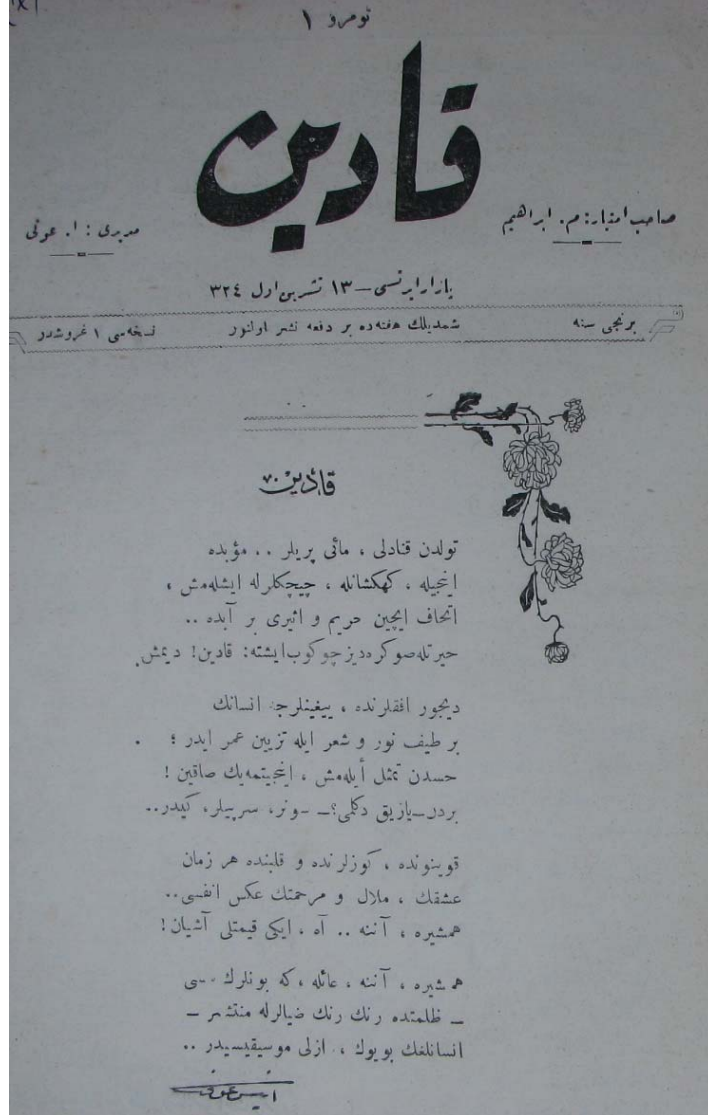 نومرو ١
قادين
صاحب امتياز: م. ابراهيم
مديرى : ا. عونى
پازار ايرتسى — ١٣ تشرين اول ٣٢٤
برنجى سنه
شمديلك هفته‌ده بر دفعه نشر اولنور
نسخه‌سى ١ غروشدر
قادين
تولدن قنادلى ، مائى پريلر .. مؤبده
اينجيله ، كهكشانله ، چيچكلرله ايشله‌مش ،
اتحاف ايچين حريم و اثيرى بر آبده ..
حيرتله صوكره ديز چوكوب ايشته: قادين! ديمش.
ديجور افقلرنده ، ييغينلرجه انسانك
بر طيف نور و شعر ايله تزيين عمر ايدر ؛
حسدن تمثل أيله‌مش ، اينجيتمه‌يك صاقين !
بردن — يازيق دكلمى؟ — سونر، سرپيلر، كيدر..
قوينونده ، كوزلرنده و قلبنده هر زمان
عشقك ، ملال و مرحمتك عكس انفسى..
همشيره ، آننه .. آه ، ايكى قيمتلى آشيان!
همشيره ، آننه ، عائله ، كه بونلرك سسى
— ظلمتده رنك رنك ضيالرله منتشر —
انسانلغك بويوك ، ازلى موسيقيسيدر ..
انيس عونى